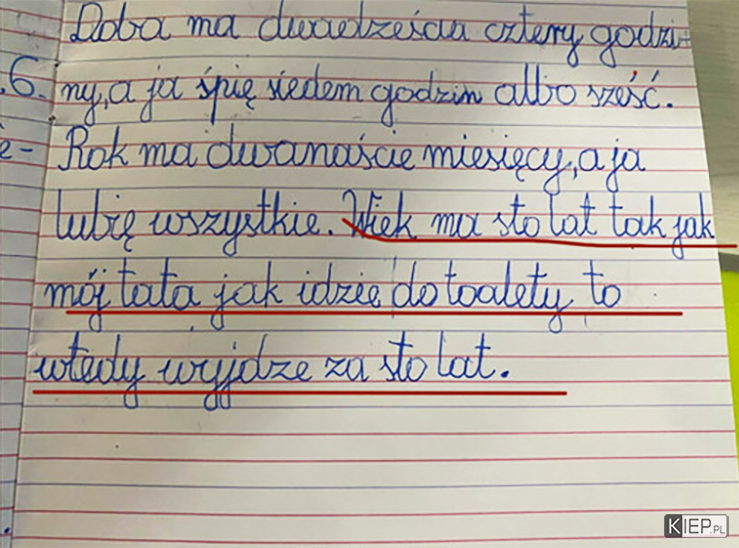 Doba ma dwadzieścia cztery godzi-
6. ny, a ja śpię siedem godzin albo sześć.
e- Rok ma dwanaście miesięcy, a ja
lubię wszystkie. Wiek ma sto lat tak jak
mój tata jak idzie do toalety to
wtedy wyjdze za sto lat.
KIEP.PL